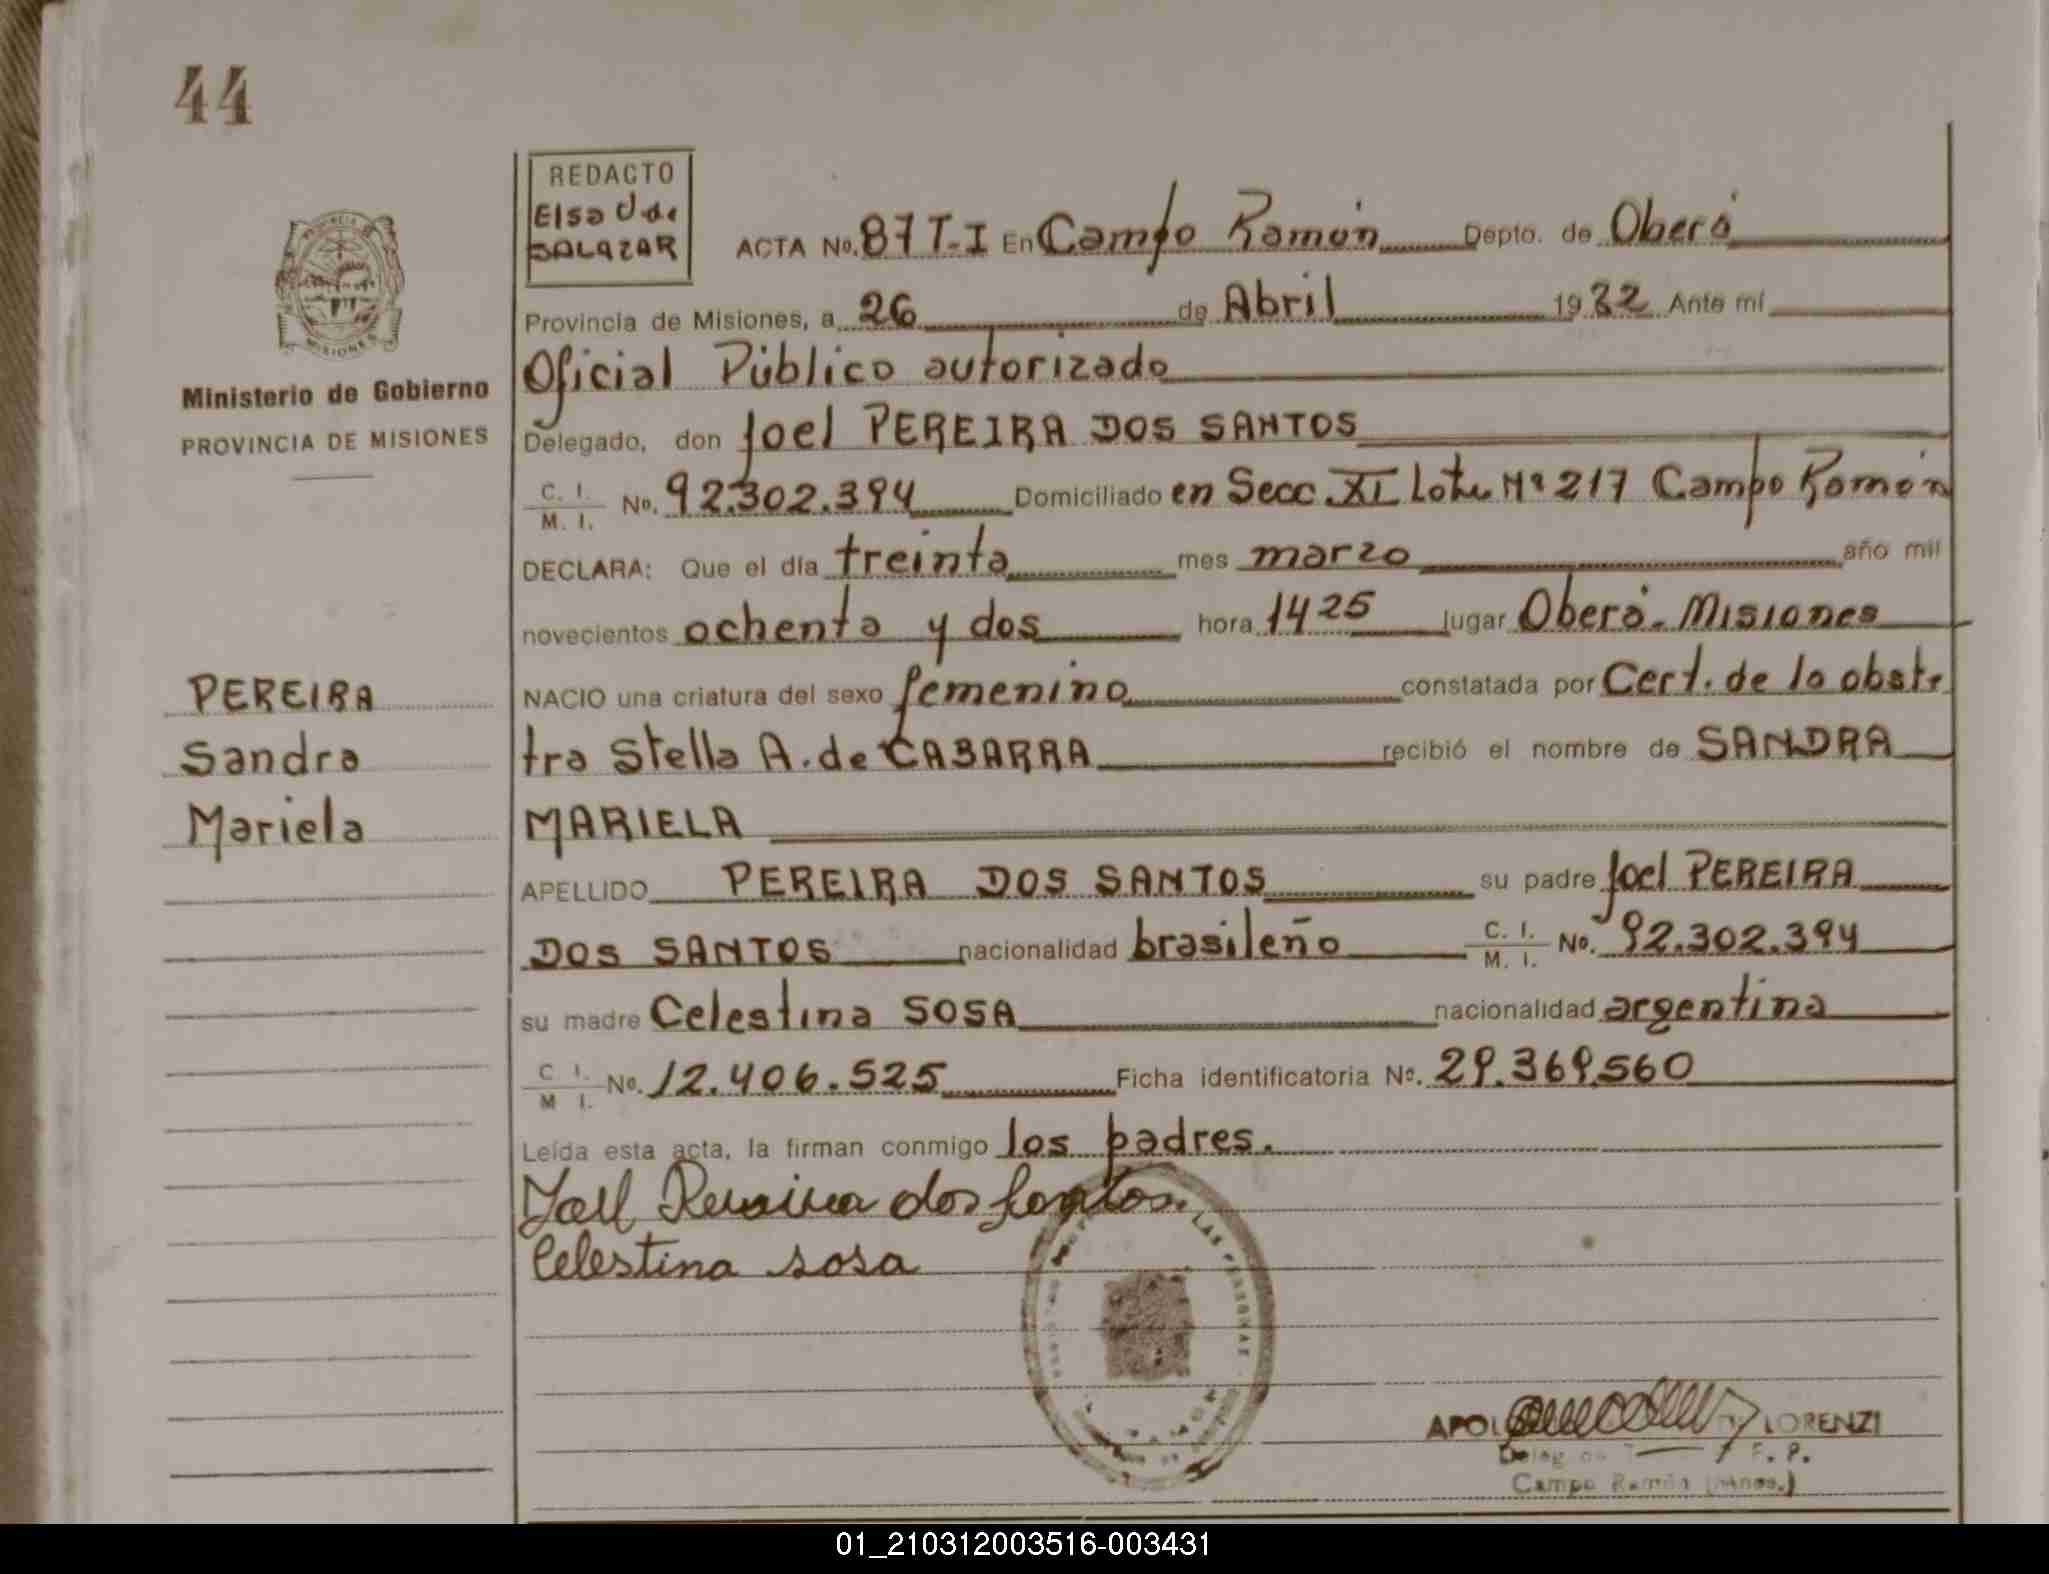 44
REDACTO
Elsa U de
SALAZAR
ACTA No. 87 T-I En Campo Ramón Depto. de Oberá
Provincia de Misiones, a 26 de Abril 1982 Ante mí
Oficial Público autorizado
Ministerio de Gobierno
PROVINCIA DE MISIONES
Delegado, don Joel PEREIRA DOS SANTOS
C. I.
M. I. No. 92.302.394 Domiciliado en Secc. XI Lote Nº 217 Campo Ramón
DECLARA: Que el día treinta mes marzo año mil
novecientos ochenta y dos hora 14 25 lugar Oberá - Misiones
PEREIRA
Sandra
Mariela
NACIO una criatura del sexo femenino constatada por Cert. de la obste
tra Stella A. de CABARRA recibió el nombre de SANDRA
MARIELA
APELLIDO PEREIRA DOS SANTOS su padre Joel PEREIRA
DOS SANTOS nacionalidad brasileño C. I. M. I. No. 92.302.394
su madre Celestina SOSA nacionalidad argentina
C I. M I. No. 12.406.525 Ficha identificatoria No. 29.369.560
Leída esta acta, la firman conmigo los padres.
Joel Pereira dos Santos.
Celestina sosa
LAS PERSONAS
LORENZI
F. P.
Campo Ramón (Mnes.)
01_210312003516-003431